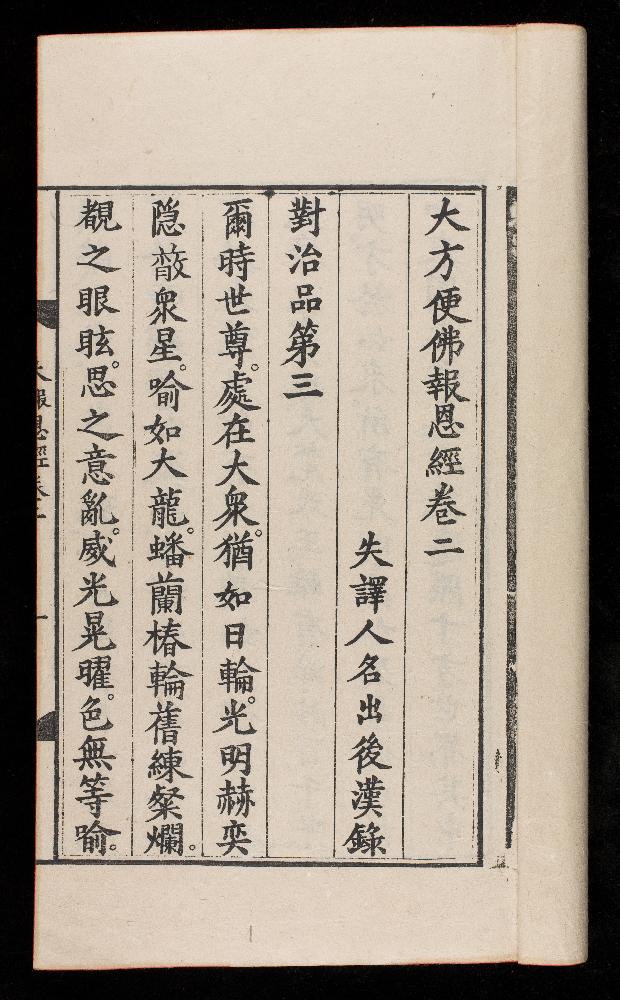 大方便佛報恩經卷二
失譯人名出後漢錄
對治品第三
爾時世尊。處在大衆。猶如日輪。光明赫奕
隱蔽衆星。喻如大龍。蟠蘭椿輪舊練粲爛。
覩之眼眩。思之意亂。威光晃曜。色無等喻。
大報恩經